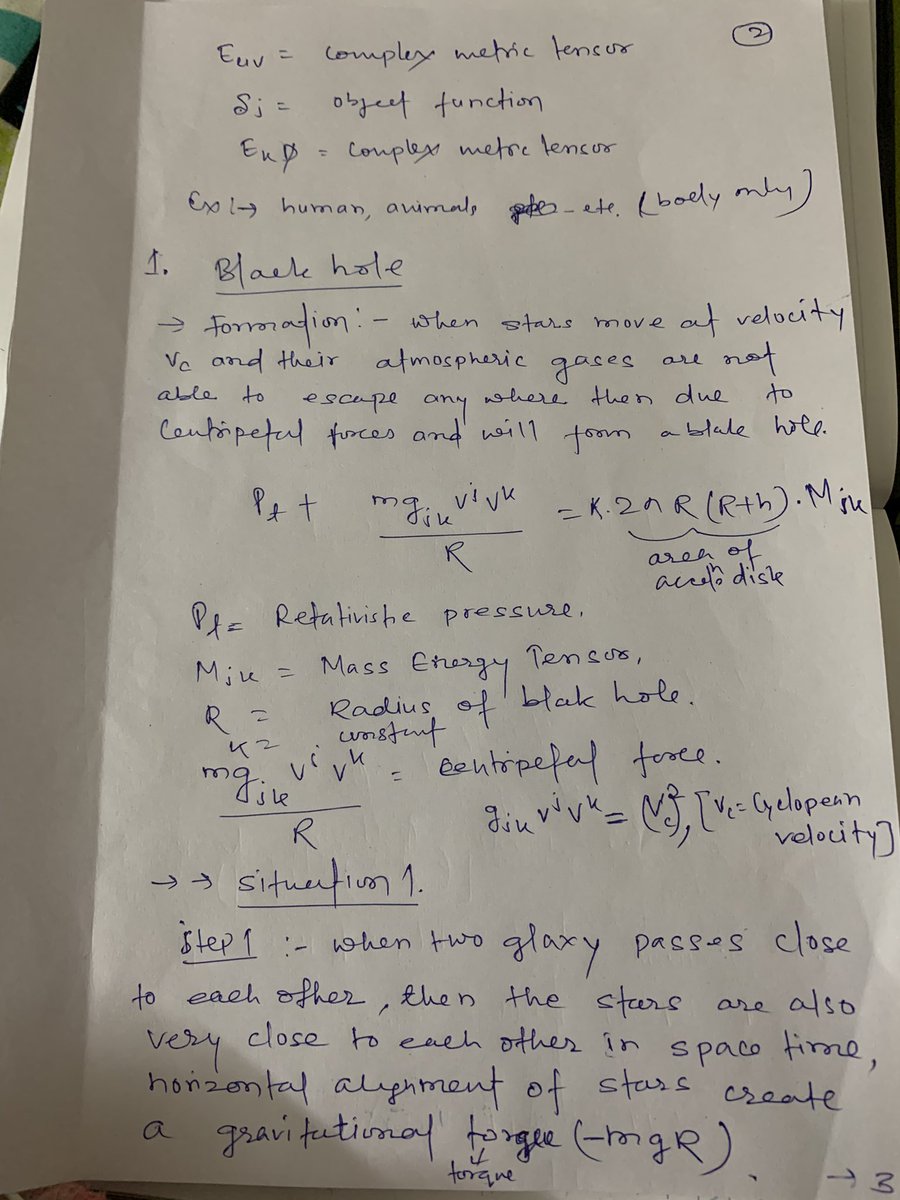 ②
Euv = complex metric tensor
Sj = object function
Ekφ = complex metric tensor
Ex:→ human, animals etc. (body only)
1. Black hole
→ Formation:- when stars move at velocity
Vc and their atmospheric gases are not
able to escape any where then due to
Centripetal forces and will form a blak hole.
Pt + mg_jk v^j v^k / R = K. 2π R (R+h) . Mjk
area of
accn disk
Pt = Relativistic pressure.
Mjk = Mass Energy Tensor,
R = Radius of blak hole.
K = constant
mg_jk v^j v^k / R = Centripetal force.
g_jk v^j v^k = (Vc²), [Vc = Cyclopean
velocity]
→→ Situation 1.
Step 1 :- when two glaxy passes close
to each other, then the stars are also
very close to each other in space time,
horizontal alignment of stars create
a gravitational torque (-mgR).
torque
→ 3